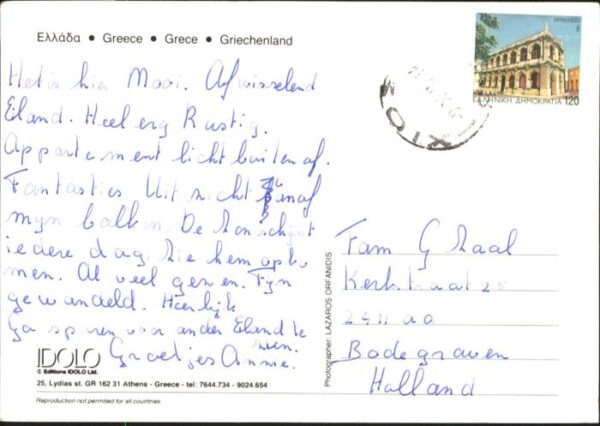 Ελλάδα • Greece • Grece • Griechenland
Het is hier Mooi. Afwisselend
Eiland. Heel erg Rustig.
Appartement licht buitenaf.
Fantasties Uitzicht vanaf
myn balkon. De Zon schijnt
iedere dag. Zie hem opko
men. Al veel gezien. Fyn
gewandeld. Heerlijk
Ga sparen voor ander Eiland te
zien.
Groetjes Annie.
ΗΡΑΚΛΕΙΟ
ΕΛΛΗΝΙΚΗ ΔΗΜΟΚΡΑΤΙΑ 120
ΧΙΟΣ
Fam G Zaal
Kerkstraat 25
2411 aa
Bodegraven
Holland
Photographer: LAZAROS ORFANIDIS
IDOLO
© Editions IDOLO Ltd.
25, Lydias st. GR 162 31 Athens - Greece - tel: 7644.734 - 9024.654
Reproduction not permited for all countries